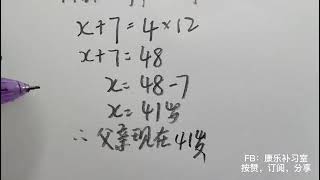 x+7=4×12
x+7=48
x=48-7
x=41岁
∴父亲现在41岁
FB：康乐补习室
按赞，订阅，分享